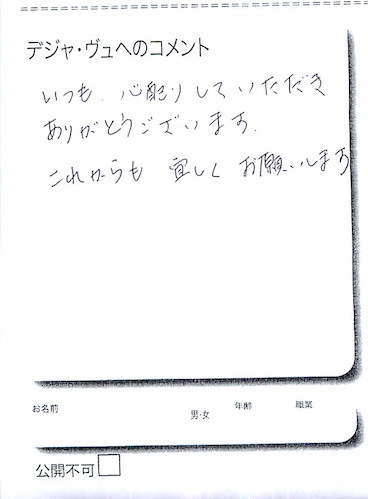 デジャ・ヴュへのコメント
いつも、心配りしていただき
ありがとうございます。
これからも 宜しく お願いします
お名前 男・女 年齢 職業
公開不可